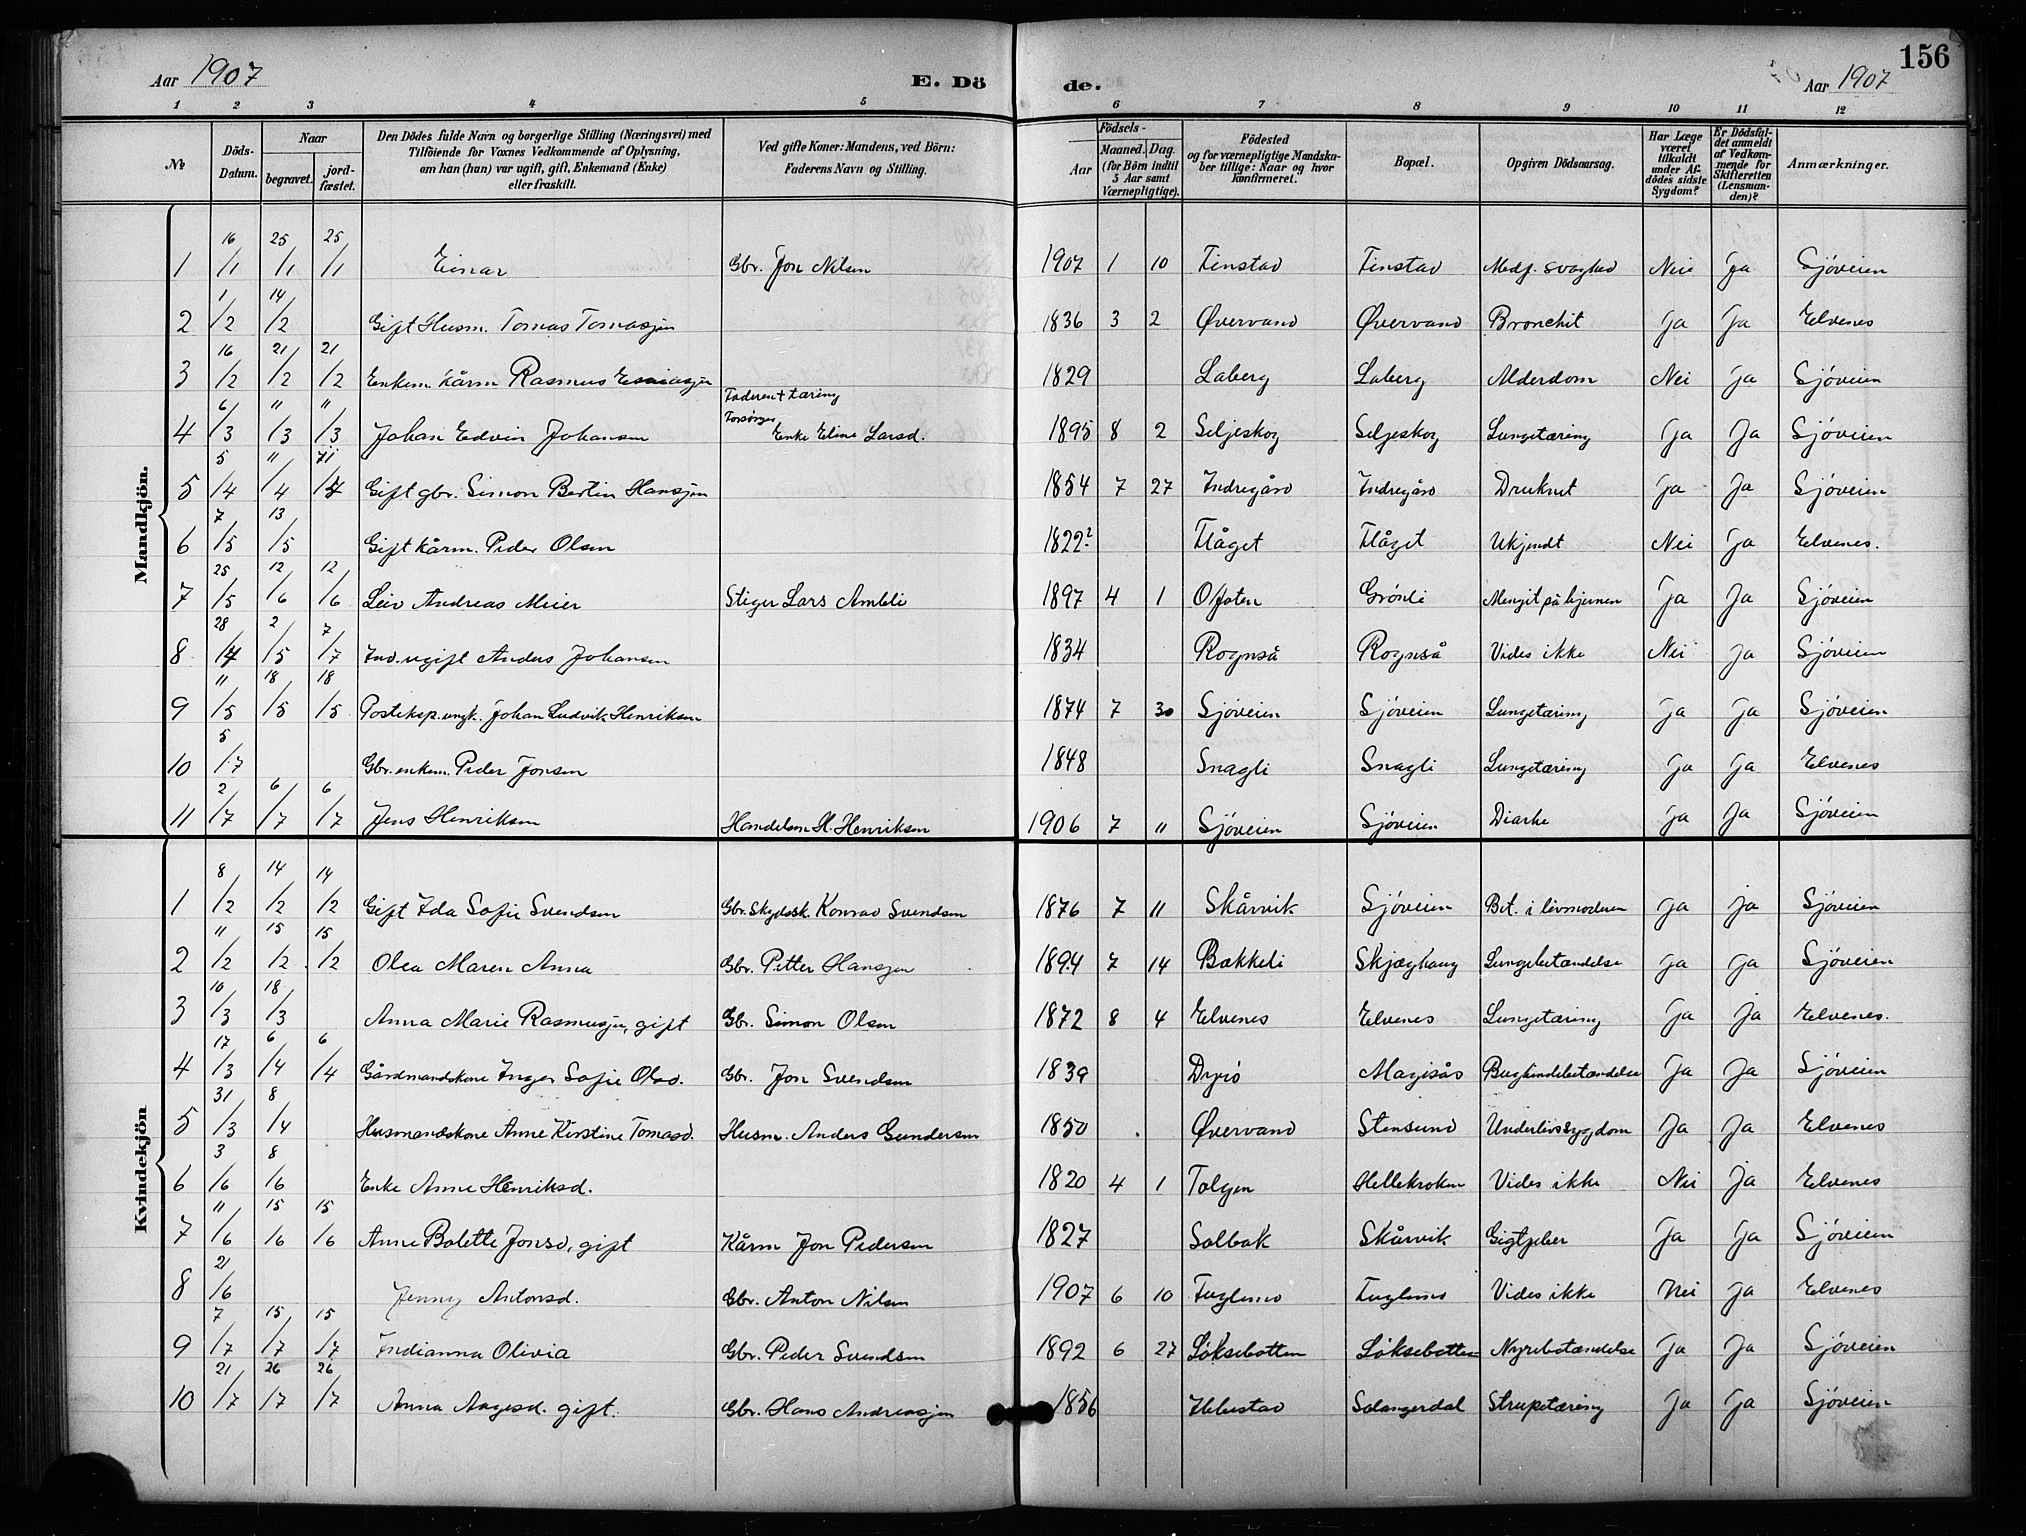 156
Aar 1907 E. Dö de. Aar 1907
1 2 3 4 5 6 7 8 9 10 11 12
No Döds-Datum. Naar begravet. jord-fæstet. Den Dödes fulde Navn og borgerlige Stilling (Næringsvei) med Tilföiende for Voxnes Vedkommende af Oplysning, om han (hun) var ugift, gift, Enkemand (Enke) eller fraskilt. Ved gifte Koner: Mandens, ved Börn: Faderens Navn og Stilling. Födsels- Aar Maaned. Dag. (for Börn indtil 5 Aar samt Værnepligtige). Födested og for værnepligtige Mandskaber tillige: Naar og hvor konfirmeret. Bopæl. Opgiven Dödsaarsag. Har Læge været tilkaldt under Afdödes sidste Sygdom? Er Dödsfaldet anmeldt af Vedkommende for Skifteretten (Lensmanden)? Anmærkninger.
Mandkjön.
1 16/1 25/1 25/1 Einar Gbr. Jon Nilsen 1907 1 10 Finstad Finstad Medf. svaghed Nei Ja Sjöveien
2 1/2 14/2 Gift Husm. Tomas Tomassen 1836 3 2 Øvervand Øvervand Bronchit Ja Ja Elvenes
3 16/2 21/2 21/2 Enkem. Kårm Rasmus Esaiassen 1829 Laberg Laberg Alderdom Nei Ja Sjöveien
4 6/3 11/3 11/3 Johan Edvin Johansen Faderen + tæring Forsörges Enke Eline Larsd. 1895 8 2 Seljeskog Seljeskog Lungetæring Ja Ja Sjöveien
5 5/4 11/4 Gift gbr. Simon Bertin Hanssen 1854 7 27 Indregård Indregård Druknet Ja Ja Sjöveien
6 7/5 13/5 Gift kårm. Peder Olsen 1822? Flåget Flåget Ukjendt Nei Ja Elvenes.
7 25/5 12/6 12/6 Leiv Andreas Meier Stiger Lars Ambli 1897 4 1 Ofoten Grönli Mengit på hjernen Ja Ja Sjöveien
8 28/4 2/5 7/7 Ind. ugift Anders Johansen 1834 Rognså Rognså Vides ikke Nei Ja Sjöveien
9 11/5 18/5 18/5 Posteksp. ungk. Johan Ludvik Henriksen 1874 7 30 Sjöveien Sjöveien Lungetæring Ja Ja Sjöveien
10 5/7 Gbr. enkem. Peder Jonsen 1848 Snagli Snagli Lungetæring Ja Ja Elvenes
11 2/7 6/7 6/7 Jens Henriksen Handelsm H. Henriksen 1906 7 11 Sjöveien Sjöveien Diarhe Ja Ja Sjöveien
Kvindekjön
1 8/2 14/2 14/2 Gift Ida Sofie Svendsen Gbr. Skydssk. Konrad Svendsen 1876 7 11 Skårvik Sjöveien Bet. i livmoderen Ja Ja Sjöveien
2 11/2 15/2 15/2 Olea Maren Anna Gbr. Petter Hanssen 1894 7 14 Bakkeli Skjæghaug Lungebetændelse Ja Ja Sjöveien
3 10/3 18/3 Anna Marie Rasmussen, gift Gbr. Simon Olsen 1872 8 4 Elvenes Elvenes Lungetæring Ja Ja Elvenes.
4 17/3 6/4 6/4 Gårdmandskone Inger Sofie Olsd. Gbr. Jon Svendsen 1839 Dyrö Magisås Bughindebetændelse Ja Ja Sjöveien
5 31/3 8/4 Husmandskone Anne Kirstine Tomasd. Husm. Anders Gundersen 1850 Øvervand Stensund Underlivssygdom Ja Ja Elvenes
6 3/6 8/6 Enke Anne Henriksd. 1820 4 1 Tolgen Hellekroken Vides ikke Nei Ja Elvenes
7 11/6 15/6 15/6 Anne Bolette Jonsd, gift Kårm Jon Pedersen 1827 Solbak Skårvik Gigtfeber Ja Ja Sjöveien
8 21/6 Jenny Antonsd. Gbr. Anton Nilsen 1907 6 10 Fuglemo Fuglemo Vides ikke Nei Ja Elvenes
9 7/7 15/7 15/7 Indianna Olivia Gbr. Peder Svendsen 1892 6 27 Löksebotten Löksebotten Nyrebetændelse Ja Ja Sjöveien
10 21/7 26/7 26/7 Anna Aagesd. gift. Gbr. Hans Andreassen 1856 Ibbestad Salangerdal Strupetæring Ja Ja Sjöveien